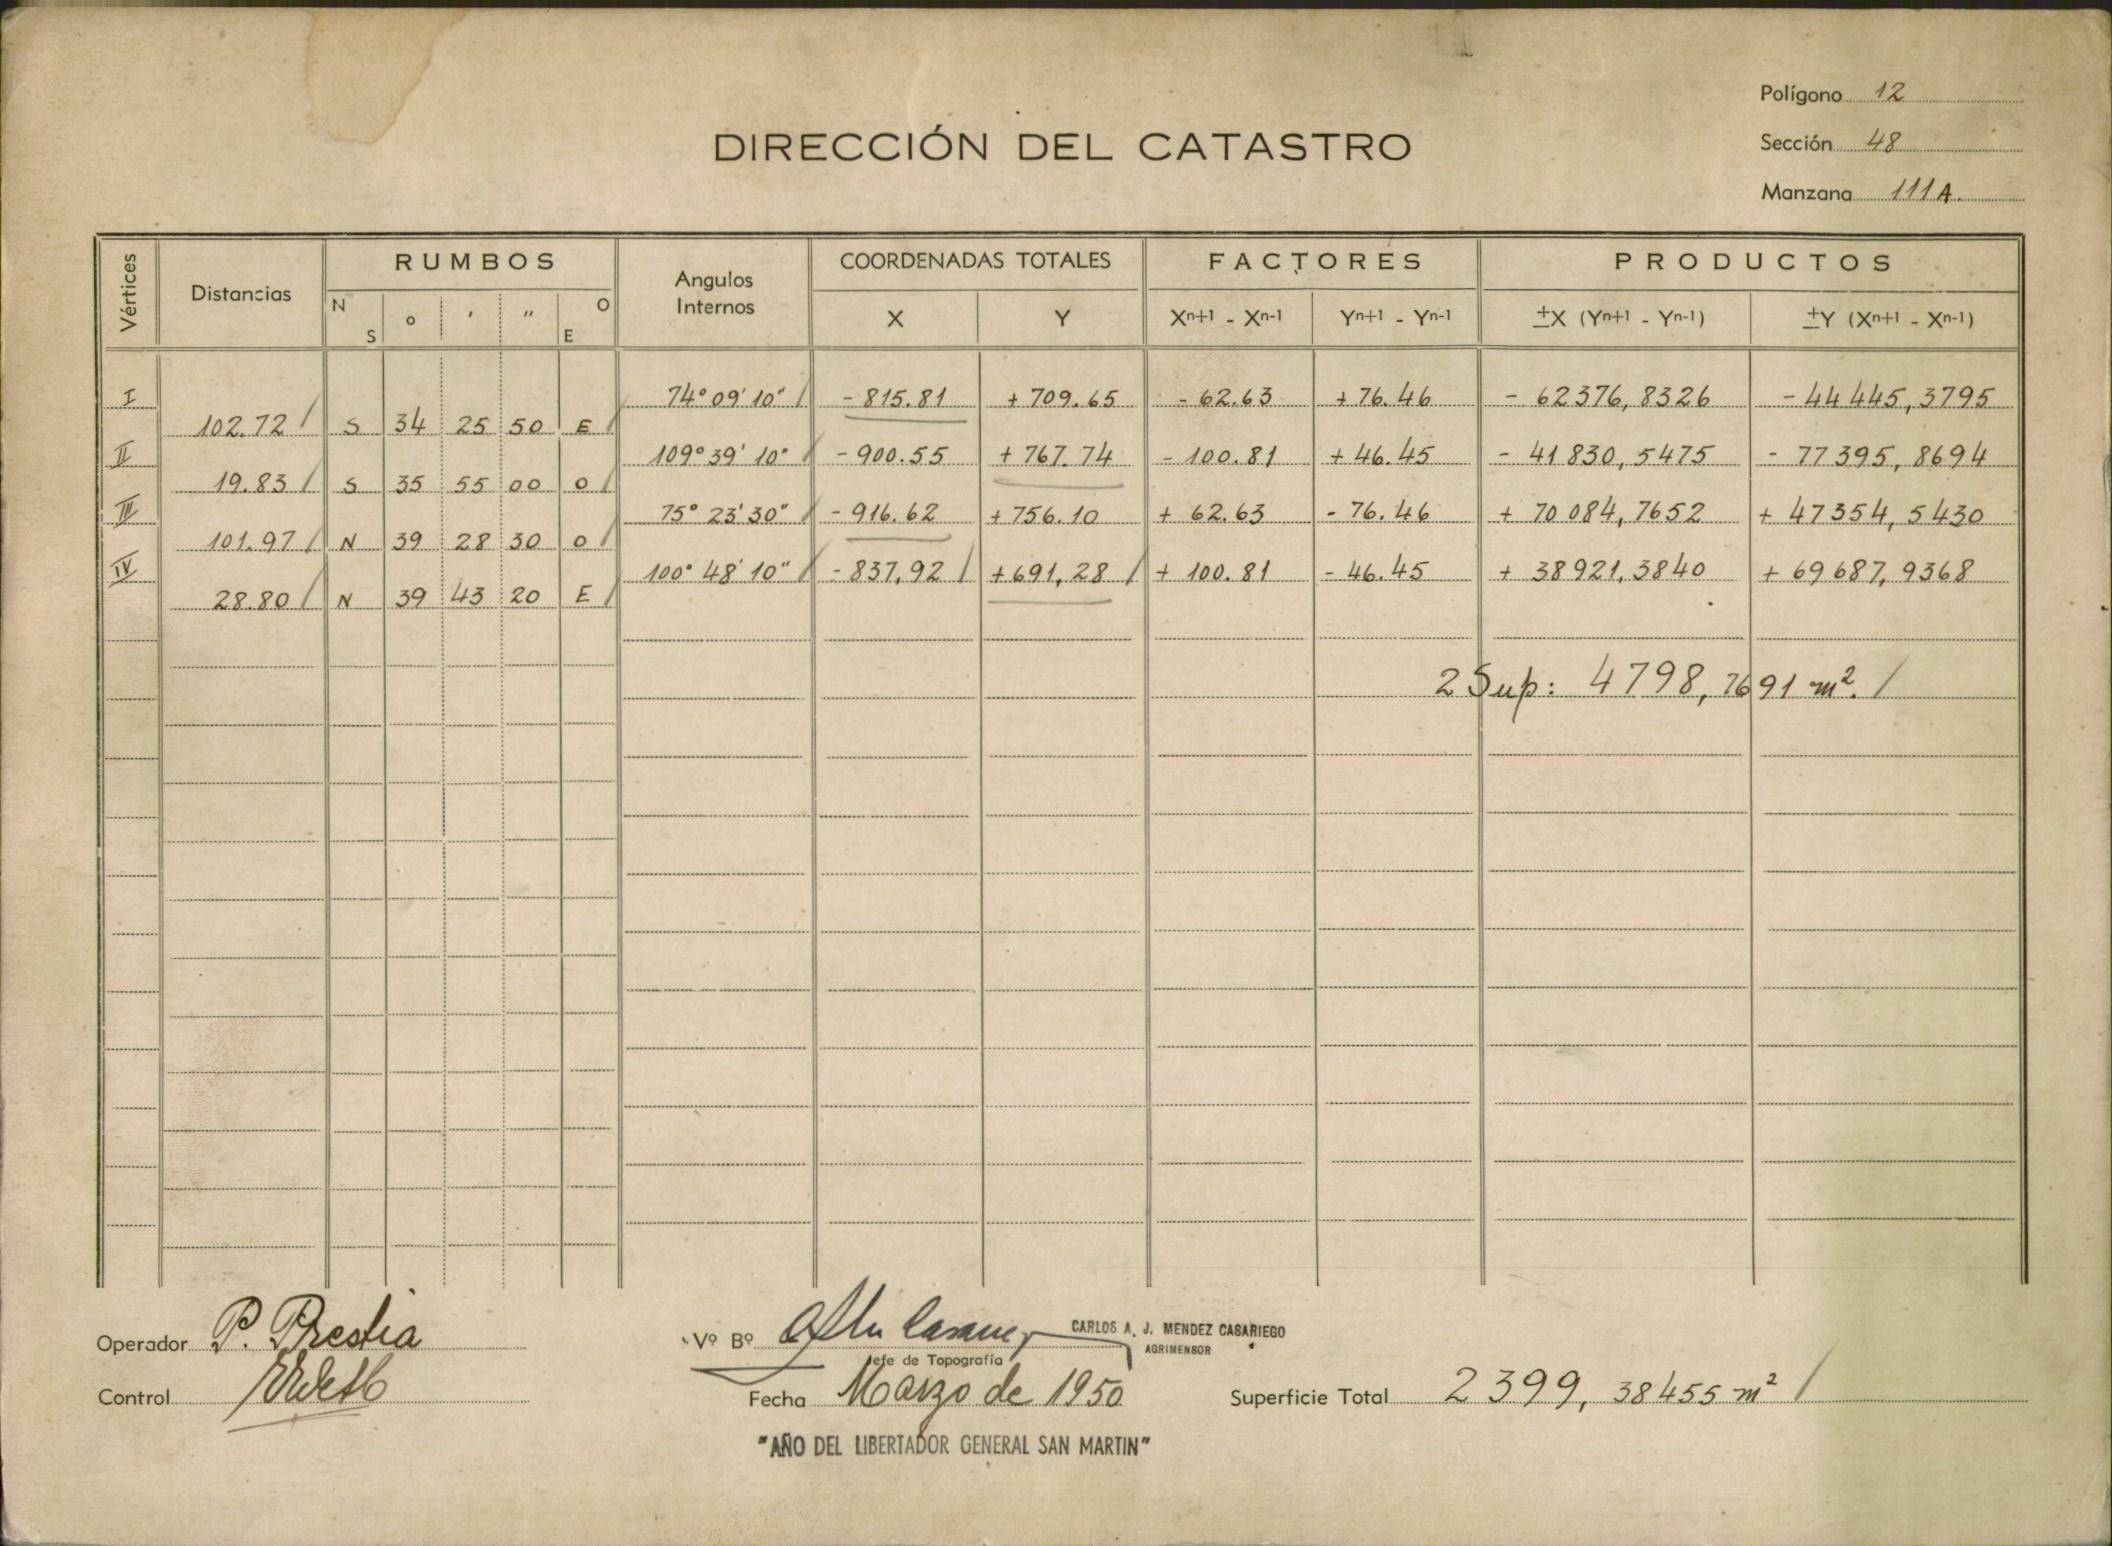 Polígono 12
DIRECCIÓN DEL CATASTRO
Sección 48
Manzana 111A.
Vértices Distancias RUMBOS Angulos Internos COORDENADAS TOTALES FACTORES PRODUCTOS
N S ° ' " O E X Y Xn+1 - Xn-1 Yn+1 - Yn-1 ±X (Yn+1 - Yn-1) ±Y (Xn+1 - Xn-1)
I 74° 09' 10" - 815.81 + 709.65 - 62.63 + 76.46 - 62376,8326 - 44445,3795
102.72 S 34 25 50 E
II 109° 39' 10" - 900.55 + 767.74 - 100.81 + 46.45 - 41830,5475 - 77395,8694
19.83 S 35 55 00 O
III 75° 23' 30" - 916.62 + 756.10 + 62.63 - 76.46 + 70084,7652 + 47354,5430
101.97 N 39 28 30 O
IV 100° 48' 10" - 837,92 + 691,28 + 100.81 - 46.45 + 38921,3840 + 69687,9368
28.80 N 39 43 20 E
2 Sup: 4798,7691 m².
Operador P. Prestia
Vº Bº CARLOS A. J. MENDEZ CASARIEGO
AGRIMENSOR
Jefe de Topografía
Control
Fecha Marzo de 1950
Superficie Total 2399,38455 m²
"AÑO DEL LIBERTADOR GENERAL SAN MARTIN"